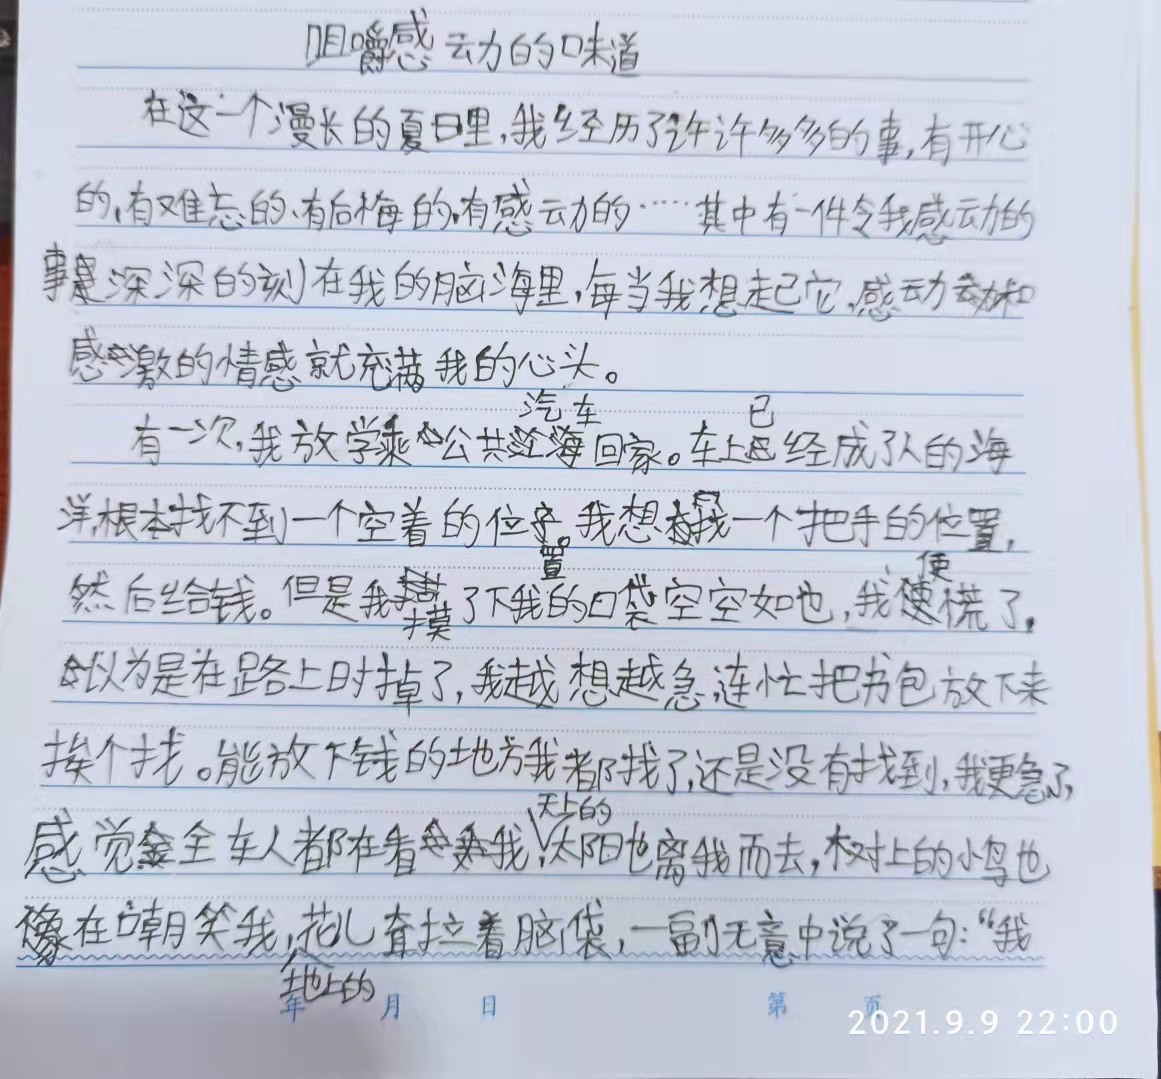 咀嚼感动的味道
在这一个漫长的夏日里,我经历了许许多多的事,有开心
的、有难忘的、有后悔的、有感动的……其中有一件令我感动的
事是深深的刻在我的脑海里,每当我想起它,感动和
感激的情感就充满我的心头。
汽车 已
有一次,我放学乘公共回家。车上经成了人的海
洋,根本找不到一个空着的位。我想找一个把手的位置,
置 便
然后给钱。但是我了下我的口袋空空如也,我慌了,
摸
以为是在路上时掉了,我越想越急,连忙把书包放下来
挨个找。能放下钱的地方我都找了,还是没有找到,我更急了,
天上的
感觉全车人都在看我,太阳也离我而去,树上的小鸟也
像在嘲笑我,花儿耷拉着脑袋,一副无意中说了一句:“我
地上的
年 月 日 第 页
2021.9.9 22:00